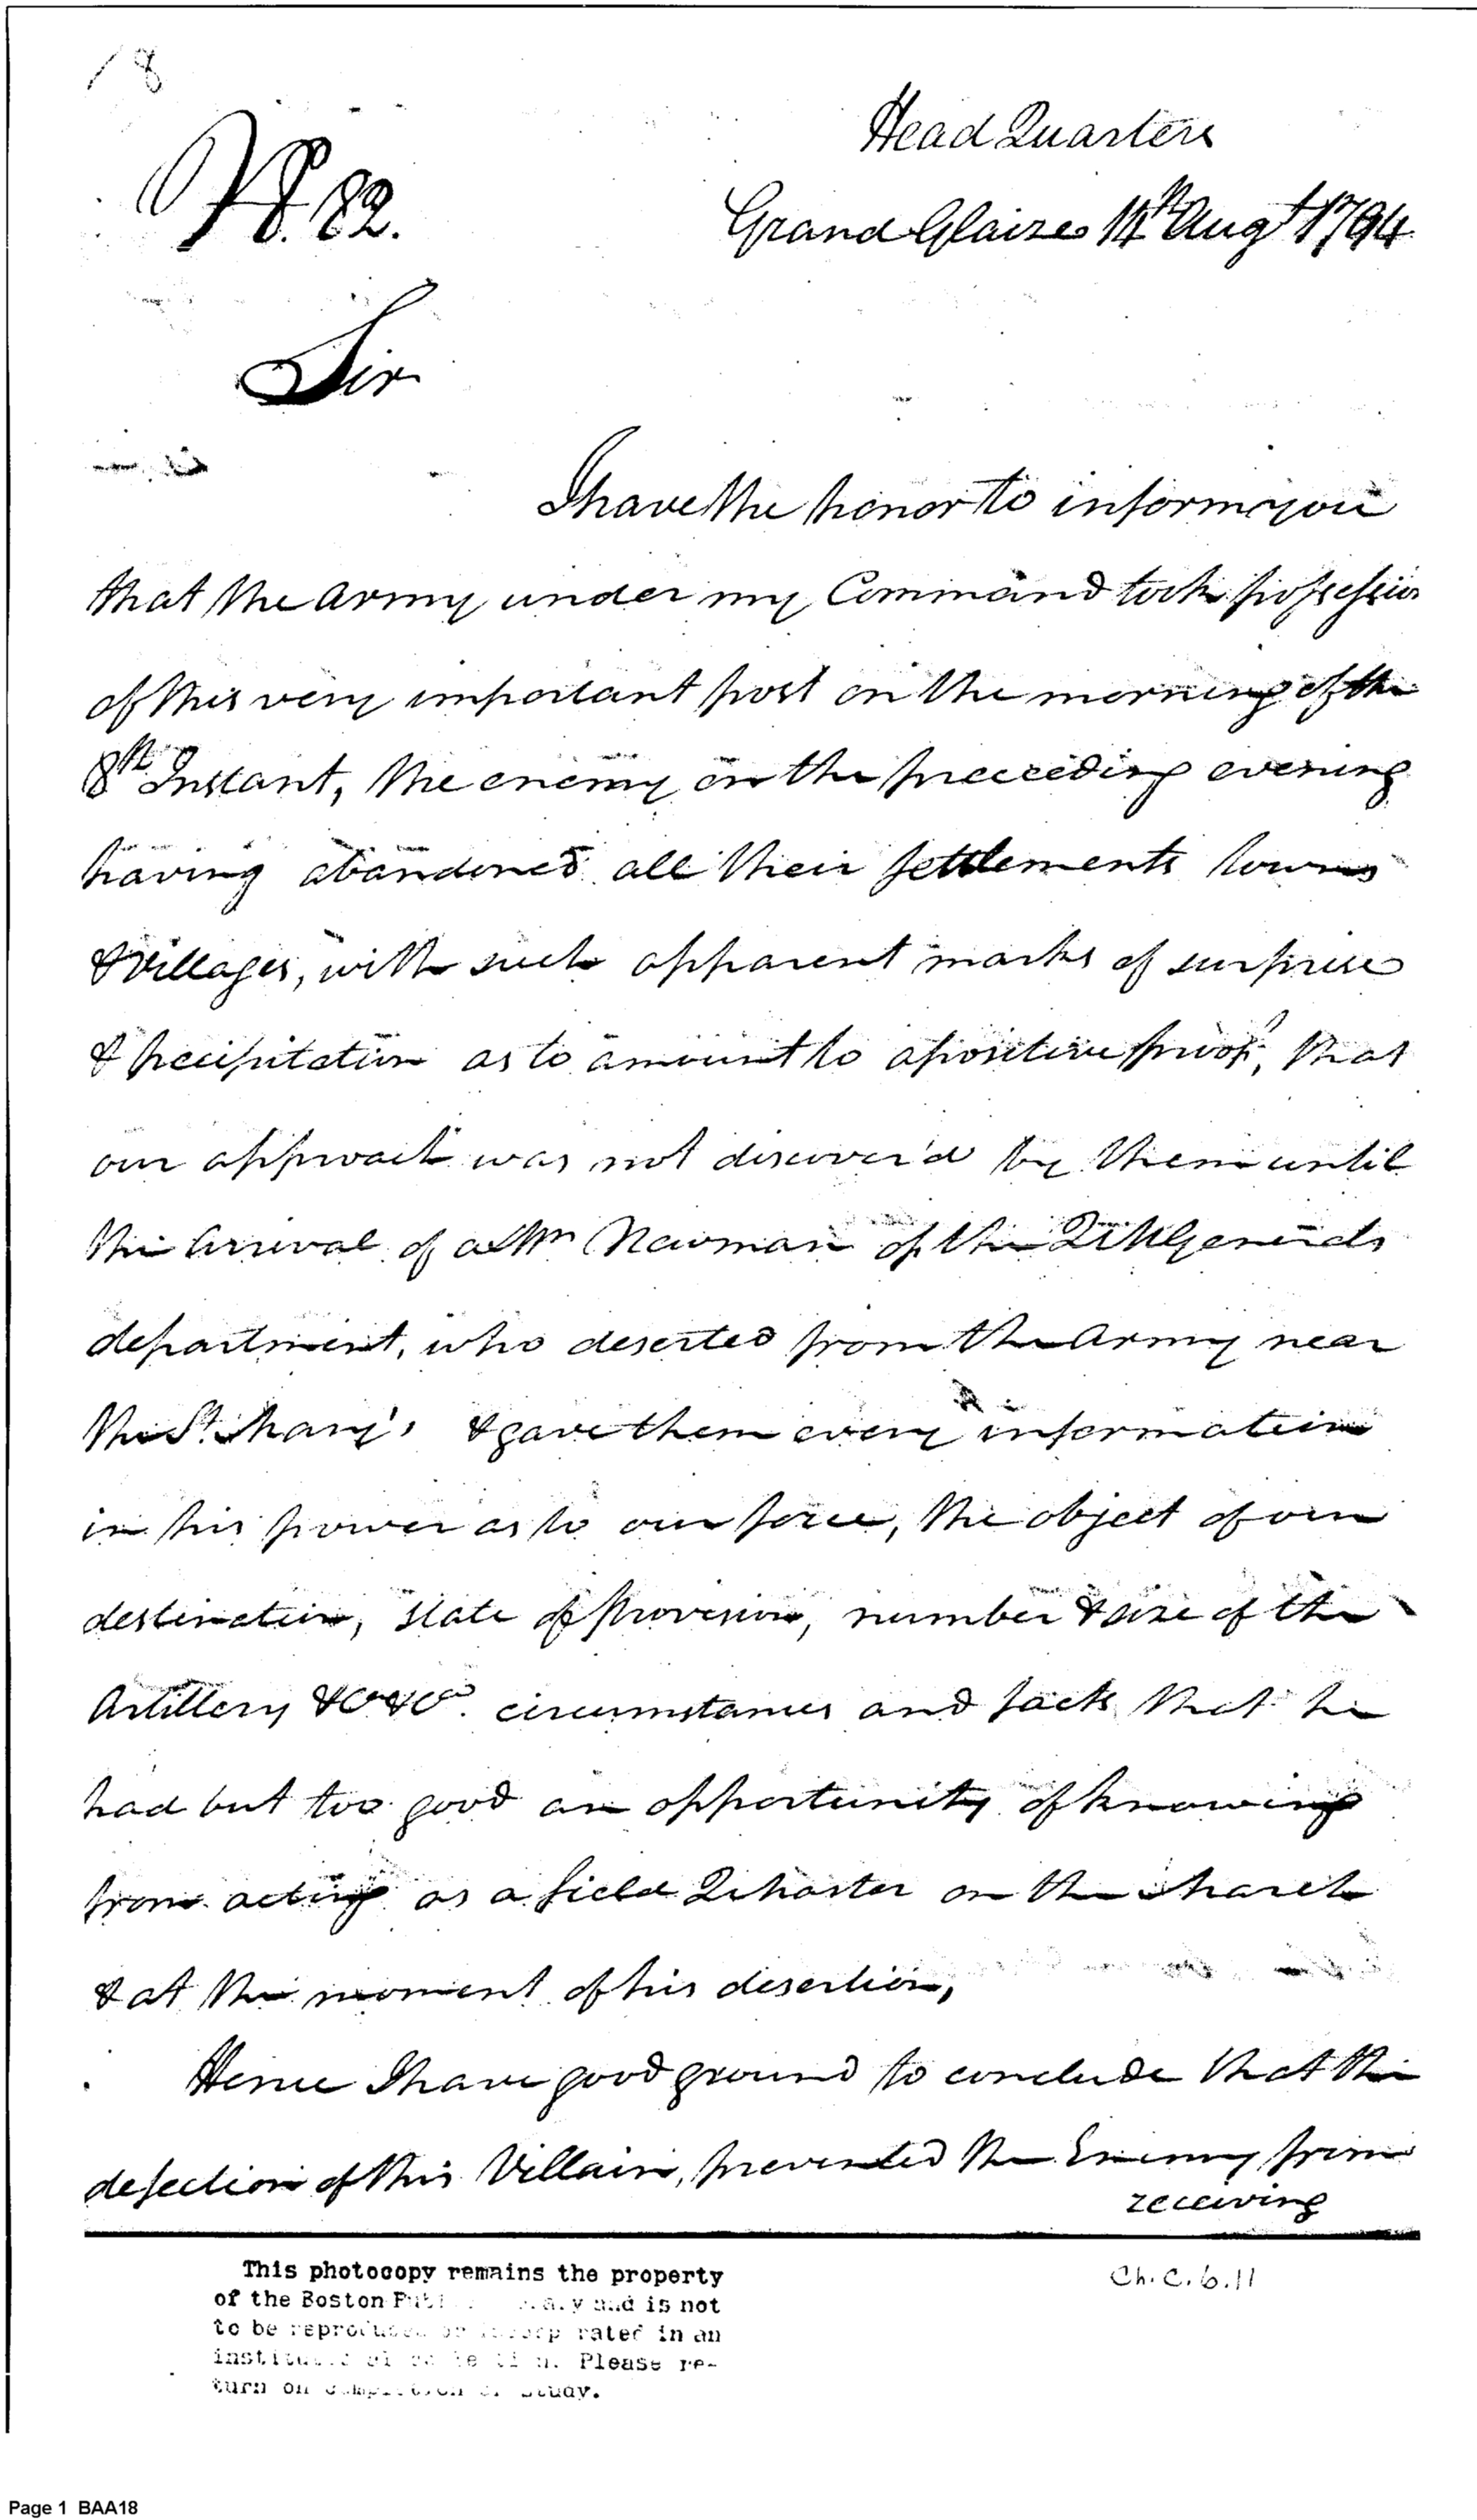 18
No. 82.
Head Quarters
Grand Glaize 14th Augt 1794
Sir
I have the honor to inform you
that the army under my Command took possession
of this very important post on the morning of the
8th Instant, the enemy on the preceeding evening
having abandoned all their settlements towns
& Villages, with such apparent marks of surprise
& precipitation as to amount to a positive proof, that
our approach was not discover'd by them until
the arrival of a Mr Newman of the QMGenerals
department, who deserted from the army near
the St. Mary's & gave them every information
in his power as to our force, the object of our
destination, state of provision, number & size of the
Artillery &c &c. circumstances and facts that he
had but too good an opportunity of knowing
from acting as a field QrMaster on the March
& at the moment of his desertion,
Hence I have good ground to conclude that the
defection of this Villain, prevented the Enemy from
receiving
This photocopy remains the property
of the Boston Public Library and is not
to be reproduced or incorporated in an
institutional collection. Please re-
turn on completion of study.
Ch.C.6.11
Page 1 BAA18